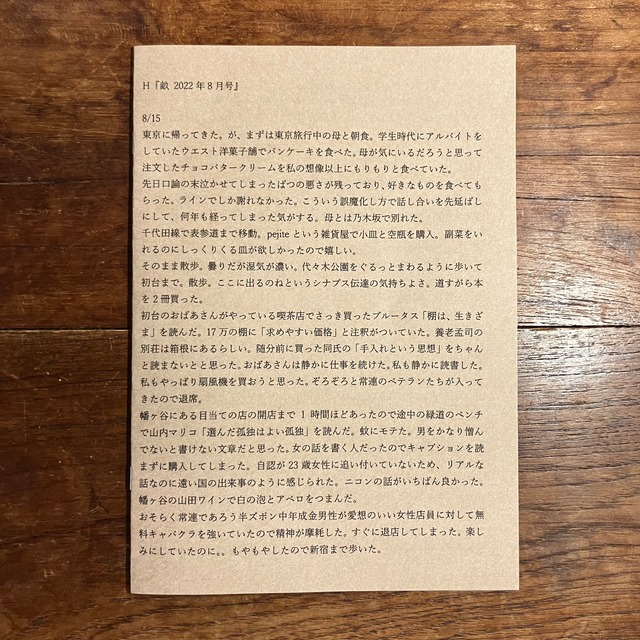 H『畝 2022年8月号』
8/15
東京に帰ってきた。が、まずは東京旅行中の母と朝食。学生時代にアルバイトを
していたウエスト洋菓子舗でパンケーキを食べた。母が気にいるだろうと思って
注文したチョコバタークリームを私の想像以上にもりもりと食べていた。
先日口論の末泣かせてしまったばつの悪さが残っており、好きなものを食べても
らった。ラインでしか謝れなかった。こういう誤魔化し方で話し合いを先延ばし
にして、何年も経ってしまった気がする。母とは乃木坂で別れた。
千代田線で表参道まで移動。pejite という雑貨屋で小皿と空瓶を購入。副菜をい
れるのにしっくりくる皿が欲しかったので嬉しい。
そのまま散歩。曇りだが湿気が濃い。代々木公園をぐるっとまわるように歩いて
初台まで。散歩。ここに出るのねというシナプス伝達の気持ちよさ。道すがら本
を2冊買った。
初台のおばあさんがやっている喫茶店でさっき買ったブルータス「棚は、生きざ
ま」を読んだ。17万の棚に「求めやすい価格」と注釈がついていた。養老孟司の
別荘は箱根にあるらしい。随分前に買った同氏の「手入れという思想」をちゃん
と読まないとと思った。おばあさんは静かに仕事を続けた。私も静かに読書した。
私もやっぱり扇風機を買おうと思った。ぞろぞろと常連のベテランたちが入って
きたので退席。
幡ヶ谷にある目当ての店の開店まで1時間ほどあったので途中の緑道のベンチ
で山内マリコ「選んだ孤独はよい孤独」を読んだ。蚊にモテた。男をかなり憎ん
でないと書けない文章だと思った。女の話を書く人だったのでキャプションを読
まずに購入してしまった。自認が23歳女性に追い付いていないため、リアルな
話なのに遠い国の出来事のように感じられた。ニコンの話がいちばん良かった。
幡ヶ谷の山田ワインで白の泡とアペロをつまんだ。
おそらく常連であろう半ズボン中年成金男性が愛想のいい女性店員に対して無
料キャバクラを強いていたので精神が摩耗した。すぐに退店してしまった。楽し
みにしていたのに。。もやもやしたので新宿まで歩いた。